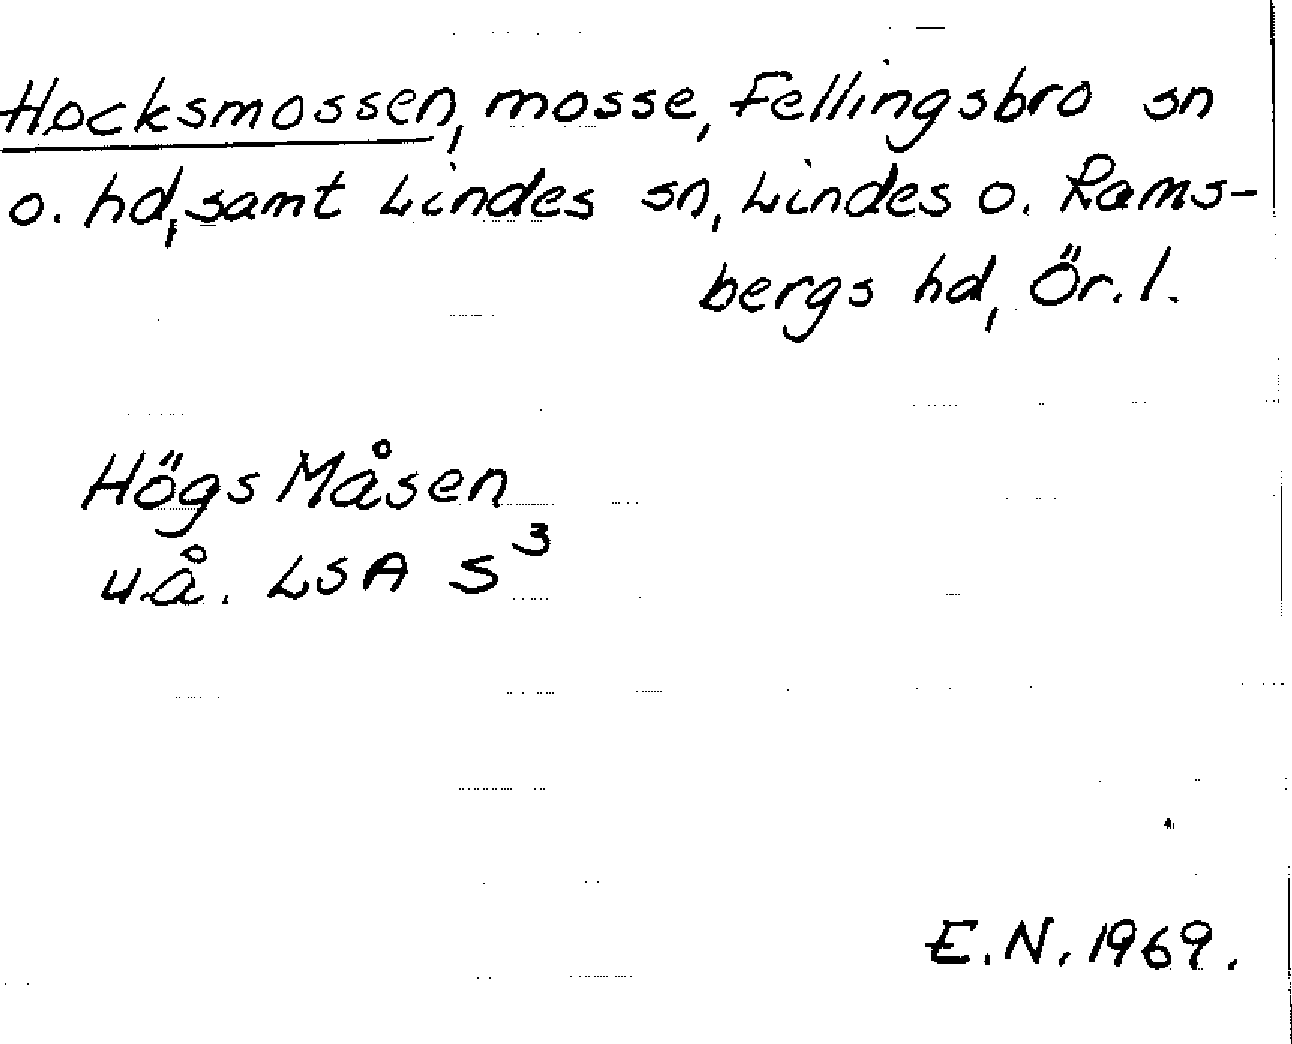 Hocksmossen, mosse, Fellingsbro sn
o. hd, samt Lindes sn, Lindes o. Rams-
bergs hd, Ör. l.
Högs Måsen
u.å. LSA S³
E.N. 1969.